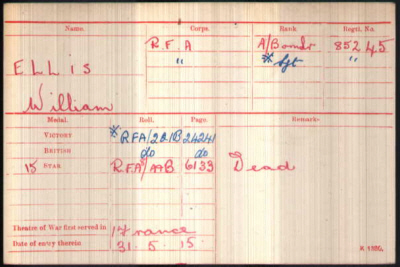 Name. Corps. Rank Regtl. No.
ELLIS R.F.A A/Bombr 85245
William " *Sgt "
Medal. Roll. Page. Remarks
VICTORY *RFA/221B 24241
BRITISH do do
15 STAR R.F.A/44B 6133 Dead
Theatre of War first served in France
Date of entry therein 31.5.15.
K 1380.